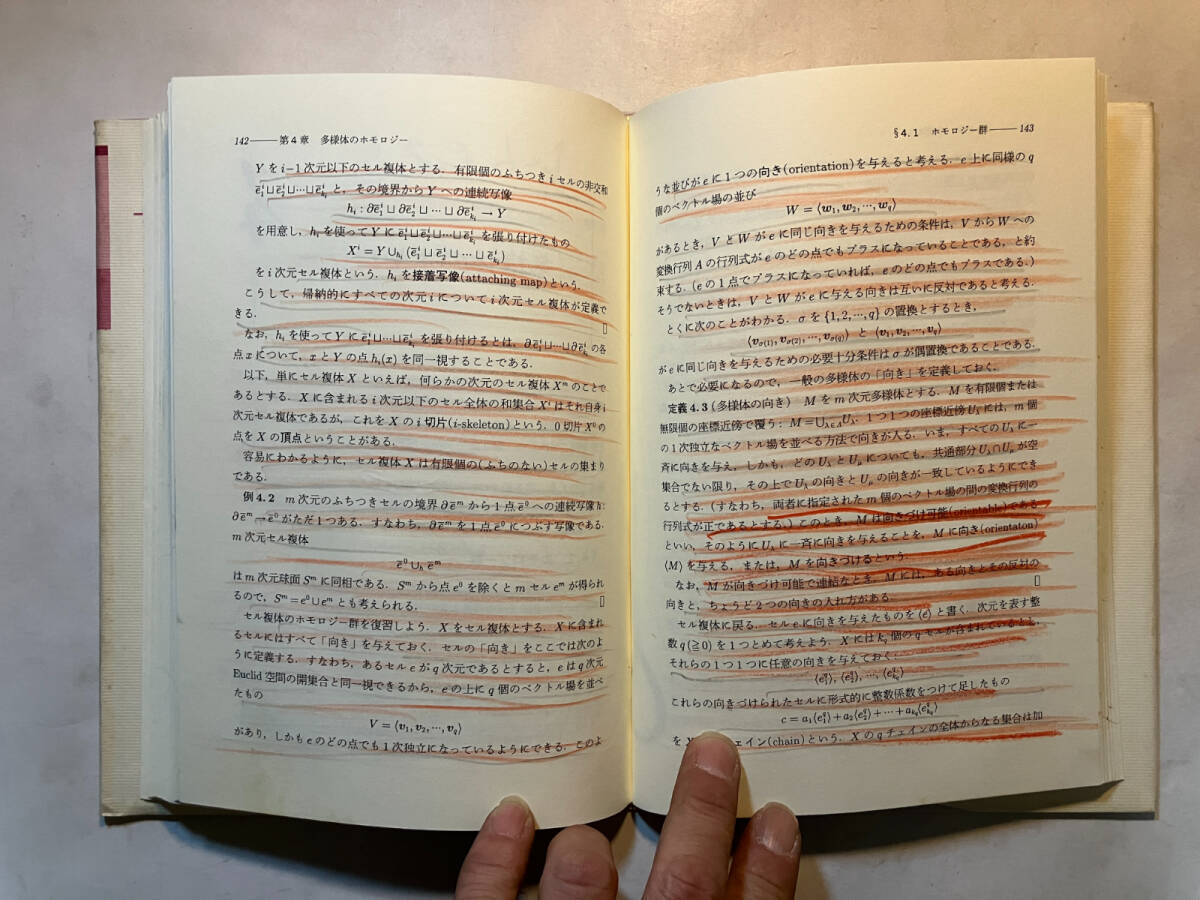 142——第4章 多様体のホモロジー
Yをi−1次元以下のセル複体とする．有限個のふちつきiセルの非交和
ē₁ⁱ⊔ē₂ⁱ⊔⋯⊔ē_{k_i}ⁱと，その境界からYへの連続写像
h_i : ∂ē₁ⁱ⊔∂ē₂ⁱ⊔⋯⊔∂ē_{k_i}ⁱ→Y
を用意し，h_iを使ってYにē₁ⁱ⊔ē₂ⁱ⊔⋯⊔ē_{k_i}ⁱを張り付けたもの
Xⁱ=Y∪_{h_i}(ē₁ⁱ⊔ē₂ⁱ⊔⋯⊔ē_{k_i}ⁱ)
をi次元セル複体という．h_iを接着写像(attaching map)という．
こうして，帰納的にすべての次元iについてi次元セル複体が定義で
きる．
なお，h_iを使ってYにē₁ⁱ⊔⋯⊔ē_{k_i}ⁱを張り付けるとは，∂ē₁ⁱ⊔⋯⊔∂ē_{k_i}ⁱの各
点xについて，xとYの点h_i(x)を同一視することである．
以下，単にセル複体Xといえば，何らかの次元のセル複体Xᵐのことで
あるとする．Xに含まれるi次元以下のセル全体の和集合Xⁱはそれ自身i
次元セル複体であるが，これをXのi切片(i-skeleton)という．0切片X⁰の
点をXの頂点ということがある．
容易にわかるように，セル複体Xは有限個の(ふちのない)セルの集まり
である．
例4.2 m次元のふちつきセルの境界∂ēᵐから1点ē⁰への連続写像h:
∂ēᵐ→ē⁰がただ1つある．すなわち，∂ēᵐを1点ē⁰につぶす写像である．
m次元セル複体
ē⁰∪_h ēᵐ
はm次元球面Sᵐに同相である．Sᵐから点e⁰を除くとmセルeᵐが得られ
るので，Sᵐ=e⁰∪eᵐとも考えられる．
セル複体のホモロジー群を復習しよう．Xをセル複体とする．Xに含まれ
るセルにはすべて「向き」を与えておく．セルの「向き」をここでは次のよ
うに定義する．すなわち，あるセルeがq次元であるとすると，eはq次元
Euclid空間の開集合と同一視できるから，eの上にq個のベクトル場を並べ
たもの
V=⟨v₁,v₂,⋯,v_q⟩
があり，しかもeのどの点でも1次独立になっているようにできる．このよ
§4.1 ホモロジー群——143
うな並びがeに1つの向き(orientation)を与えると考える．e上に同様のq
個のベクトル場の並び
W=⟨w₁,w₂,⋯,w_q⟩
があるとき，VとWがeに同じ向きを与えるための条件は，VからWへの
変換行列Aの行列式がeのどの点でもプラスになっていることである，と約
束する．(eの1点でプラスになっていれば，eのどの点でもプラスである．)
そうでないときは，VとWがeに与える向きは互いに反対であると考える．
とくに次のことがわかる．σを{1,2,⋯,q}の置換とするとき，
⟨v_{σ(1)},v_{σ(2)},⋯,v_{σ(q)}⟩ と ⟨v₁,v₂,⋯,v_q⟩
がeに同じ向きを与えるための必要十分条件はσが偶置換であることである．
あとで必要になるので，一般の多様体の「向き」を定義しておく．
定義4.3(多様体の向き) Mをm次元多様体とする．Mを有限個または
無限個の座標近傍で覆う：M=⋃_{λ∈Λ}U_λ．1つ1つの座標近傍U_λには，m個
の1次独立なベクトル場を並べる方法で向きが入る．いま，すべてのU_λに一
斉に向きを与え，しかも，どのU_λとU_μについても，共通部分U_λ∩U_μが空
集合でない限り，その上でU_λの向きとU_μの向きが一致しているようにでき
るとする．(すなわち，両者に指定されたm個のベクトル場の間の変換行列の
行列式が正であるとする．)このとき，Mは向きづけ可能(orientable)である
といい，そのようにU_λに一斉に向きを与えることを，Mに向き(orientaton)
⟨M⟩を与える，または，Mを向きづけるという．
なお，Mが向きづけ可能で連結なとき，Mには，ある向きとその反対の
向きと，ちょうど2つの向きの入れ方がある．
セル複体に戻る．セルeに向きを与えたものを⟨e⟩と書く．次元を表す整
数q(≧0)を1つとめて考えよう．Xにはk_q個のqセルが含まれているとし，
それらの1つ1つに任意の向きを与えておく．
⟨e₁^q⟩,⟨e₂^q⟩,⋯,⟨e_{k_q}^q⟩
これらの向きづけられたセルに形式的に整数係数をつけて足したもの
c=a₁⟨e₁^q⟩+a₂⟨e₂^q⟩+⋯+a_{k_q}⟨e_{k_q}^q⟩
を ェイン(chain)という．Xのqチェインの全体からなる集合は加